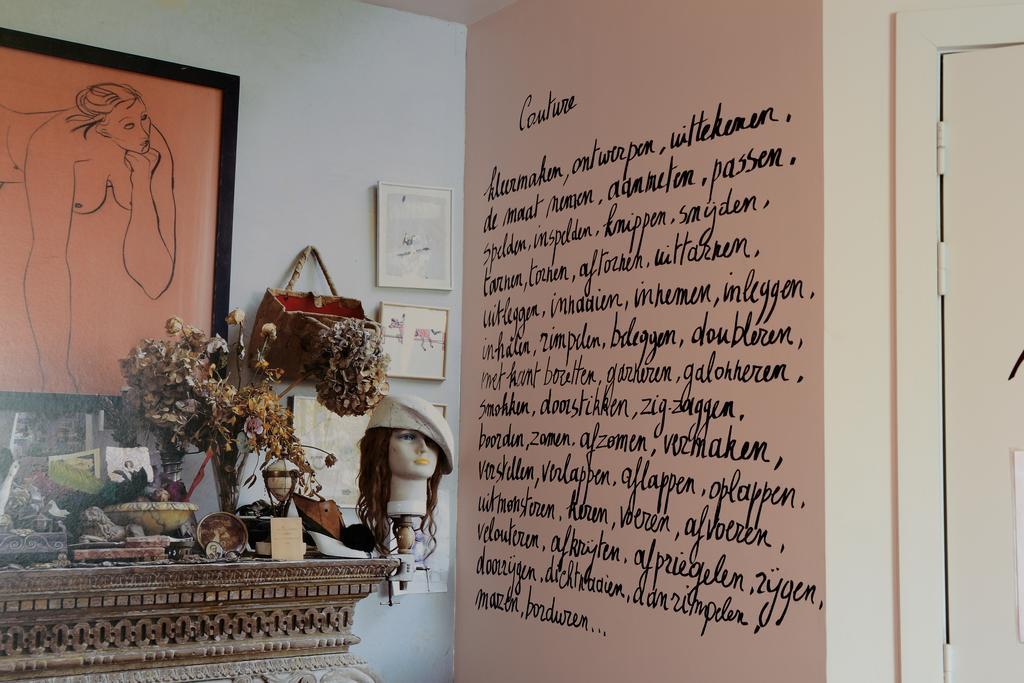 Couture
kleermaken, ontwerpen, uittekenen,
de maat nemen, aanmeten, passen.
spelden, inspelden, knippen, snijden,
tarnen, tornen, aftornen, uittarnen,
uitleggen, innaaien, innemen, inleggen,
inhalen, rimpelen, beleggen, doubleren,
met kant bezetten, garneren, galonneren,
smokken, doorstikken, zig-zaggen.
boorden, zomen. afzomen, vermaken,
verstellen, verlappen, aflappen, oplappen,
uitmonsteren, keren, voeren, afvoeren,
velouteren, afkrijten, afpriegelen, rijgen,
doorrijgen, dichtnaaien, aanrimpelen,
mazen, borduren...